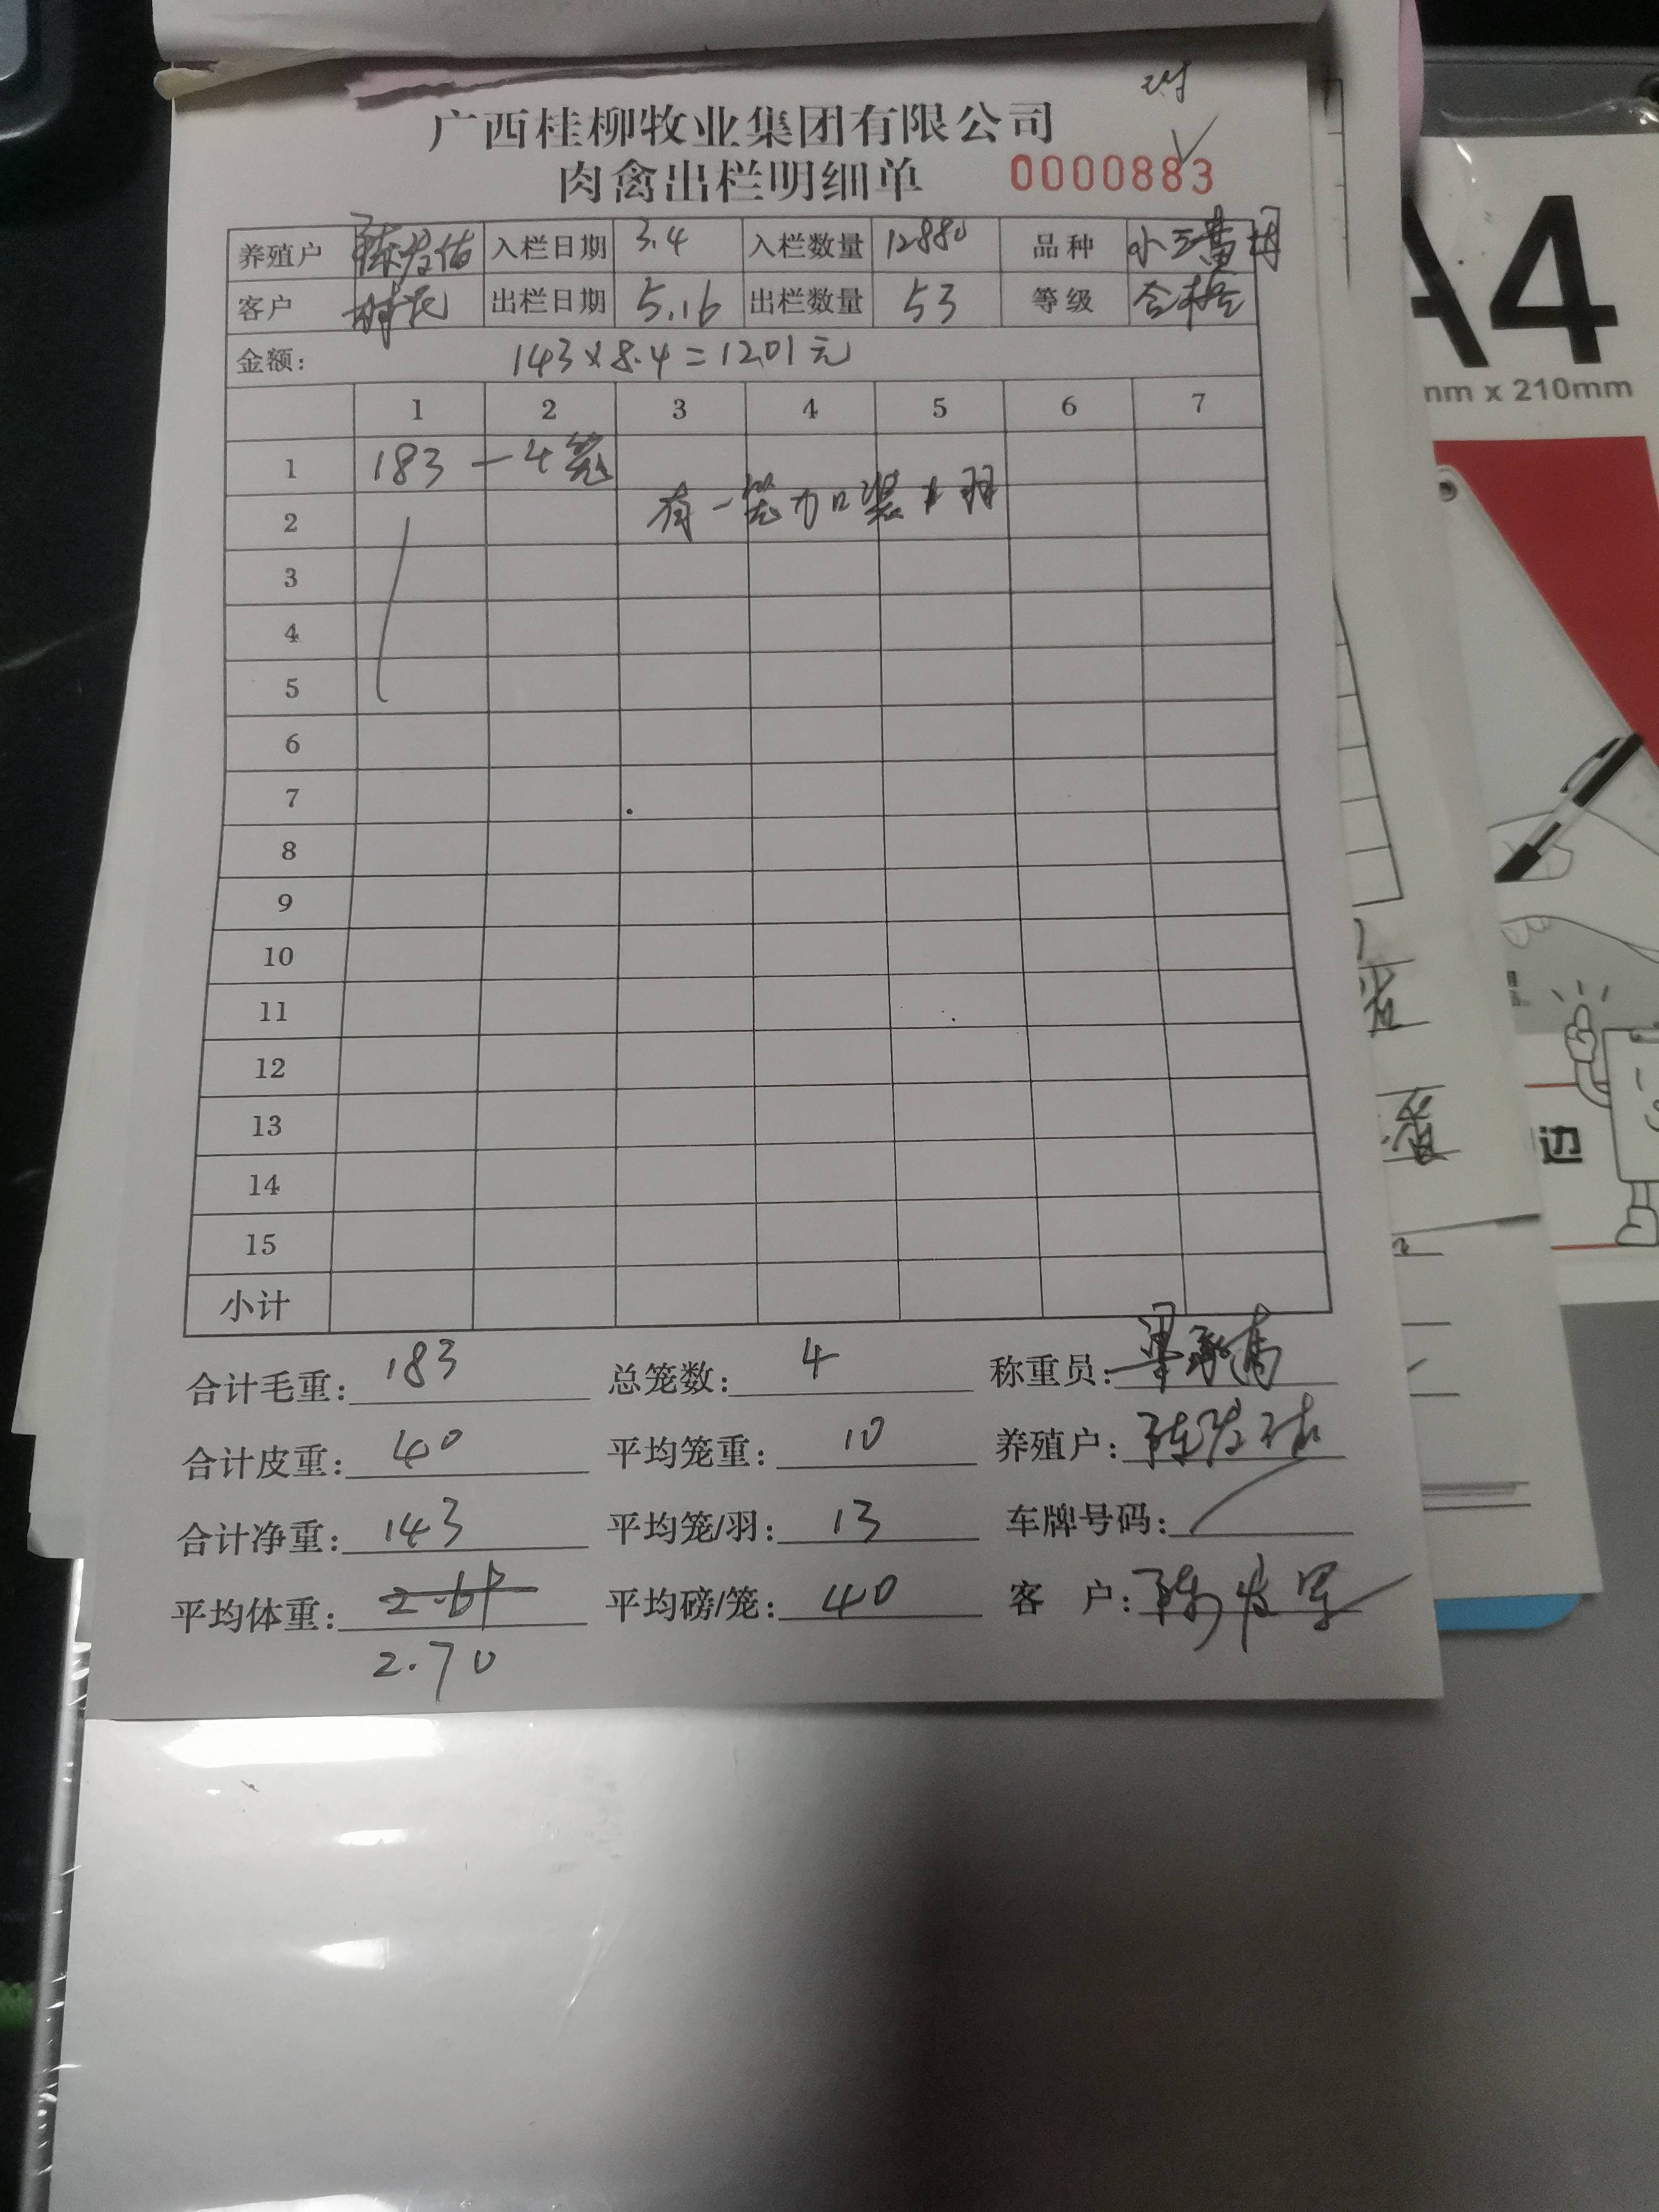 广西桂柳牧业集团有限公司
肉禽出栏明细单 0000883
养殖户 陈发佑 入栏日期 3.4 入栏数量 12880 品种 小三黄母
客户 出栏日期 5.16 出栏数量 53 等级 合格
金额: 143×8.4=1201元
1 2 3 4 5 6 7
1 183 — 4笼
2 有一笼加装 羽
3
4
5
6
7
8
9
10
11
12
13
14
15
小计
合计毛重: 183 总笼数: 4 称重员:
合计皮重: 40 平均笼重: 10 养殖户: 陈发佑
合计净重: 143 平均笼/羽: 13 车牌号码:
平均体重: 平均磅/笼: 40 客 户: 陈发军
2.70
A4
mm x 210mm
边